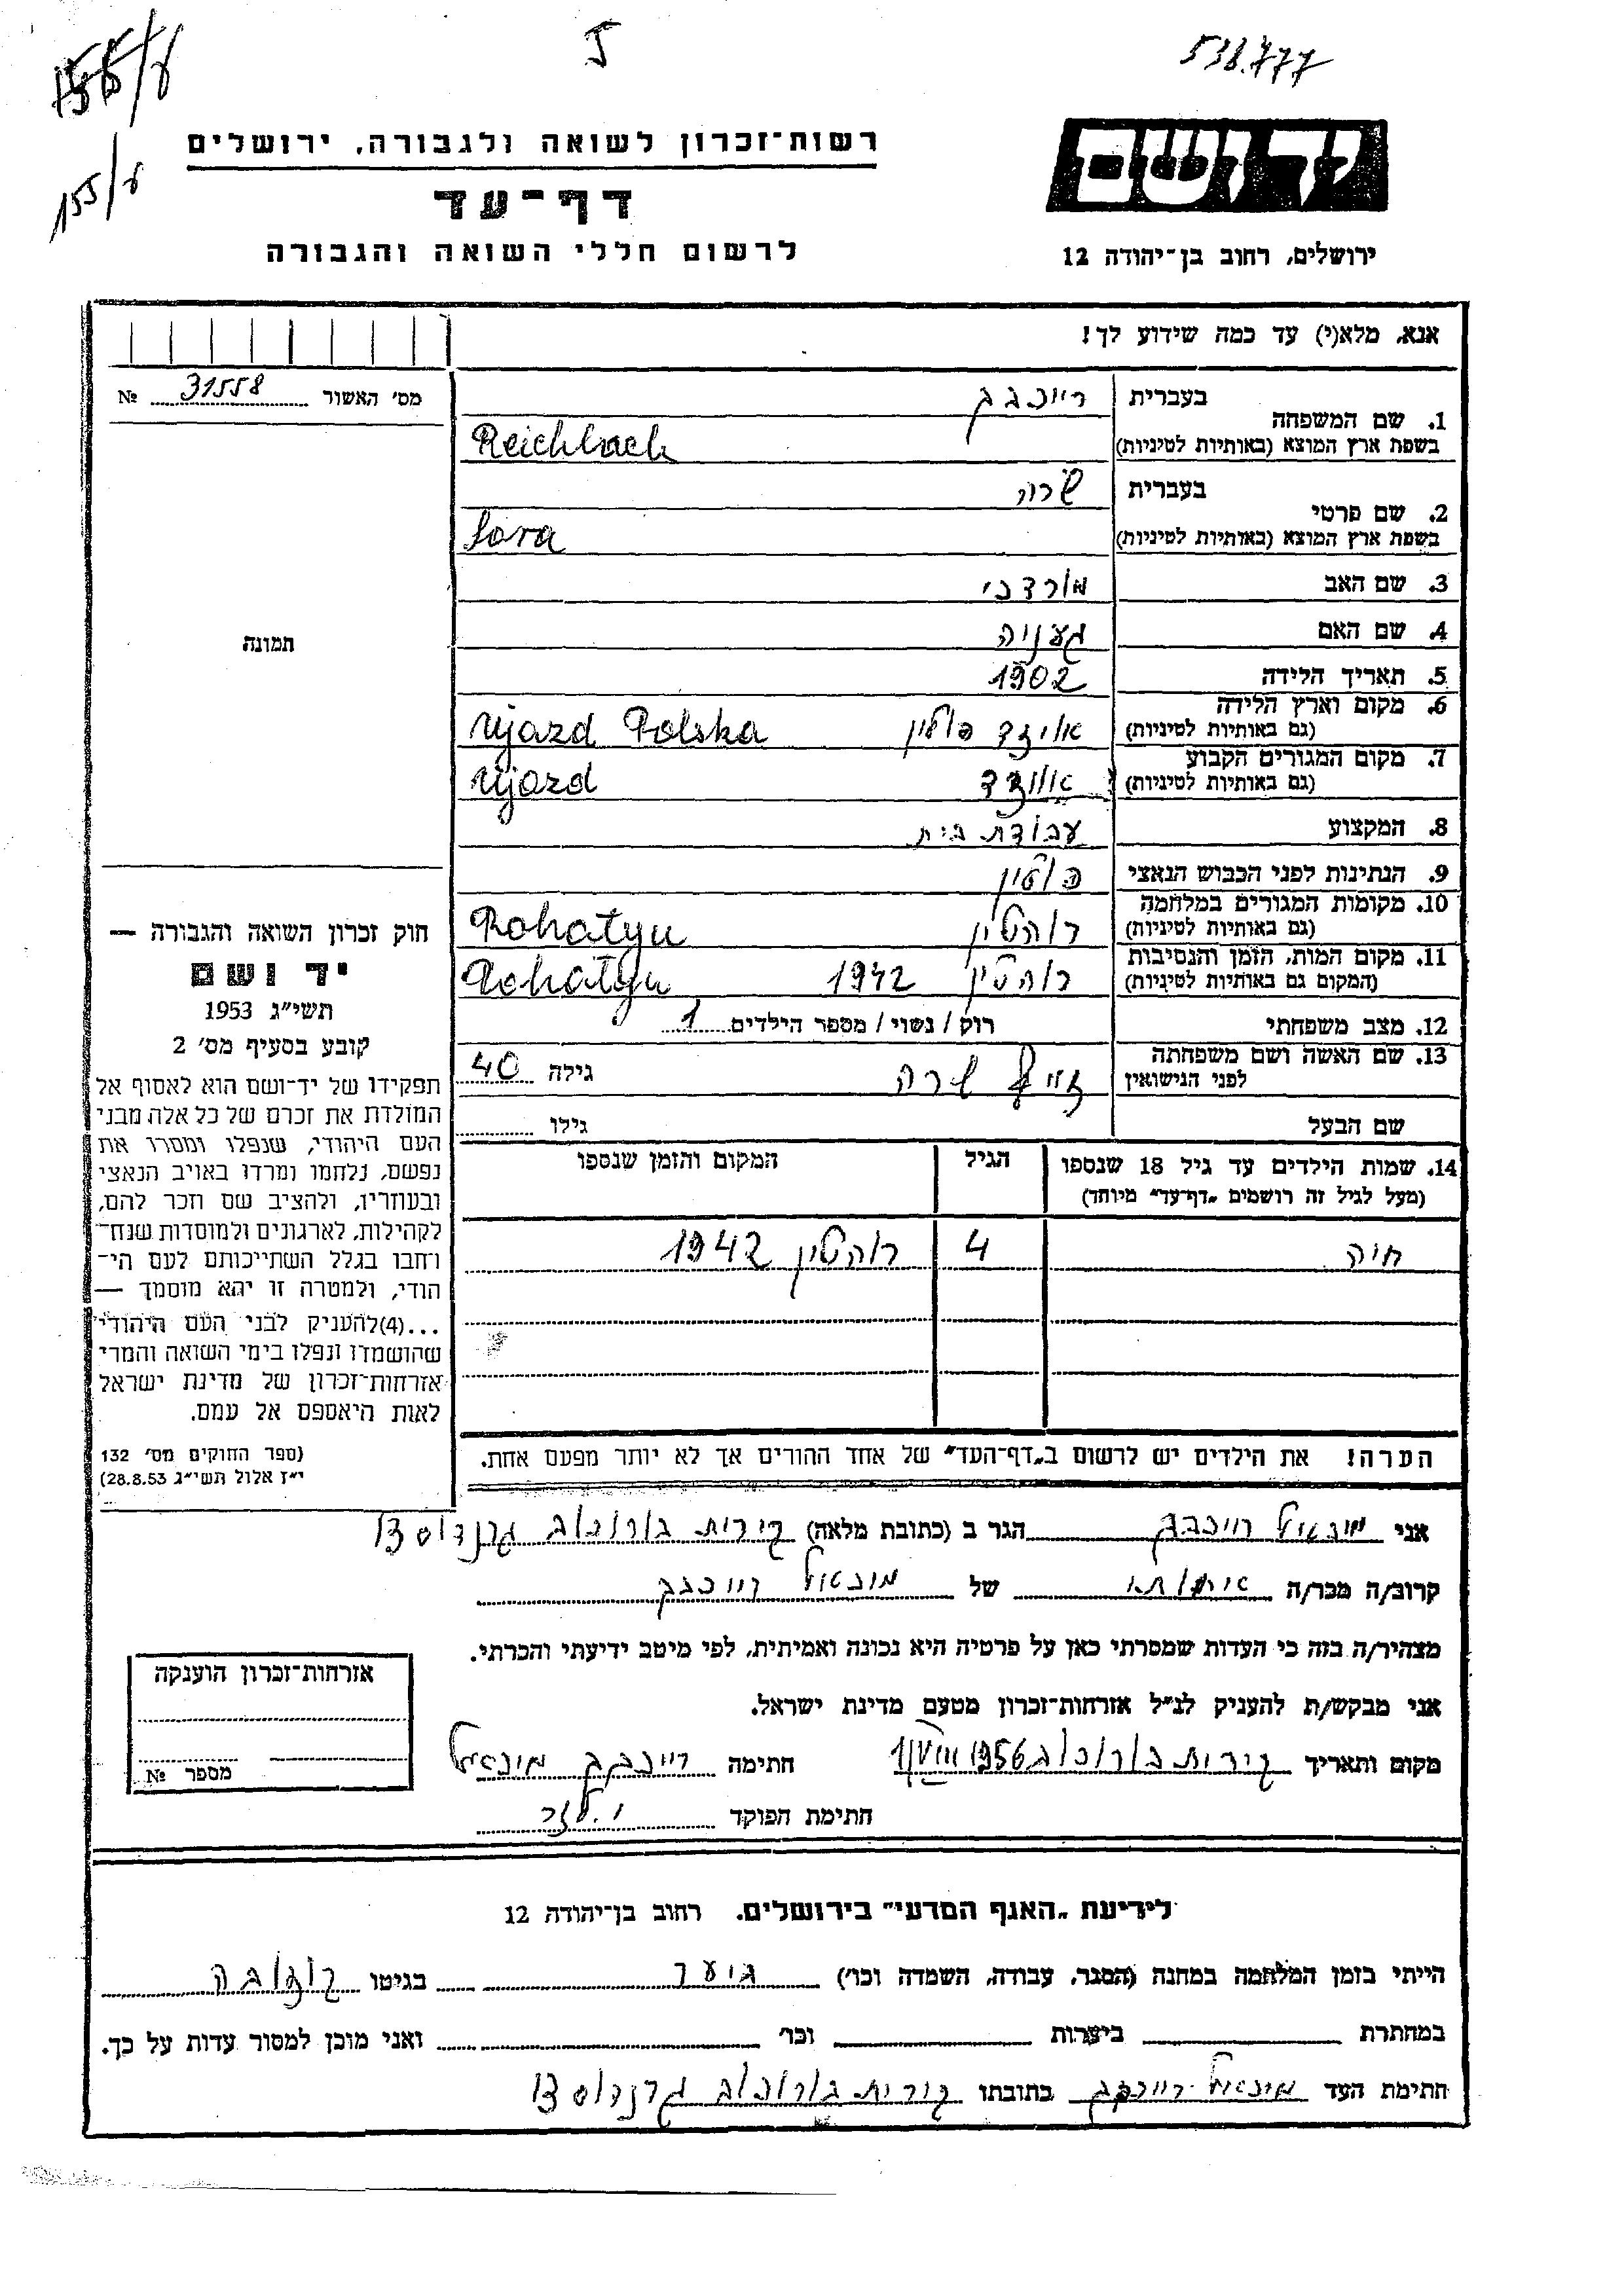 155/ע
5
538.777
155/ע
יד ושם
רשות־זכרון לשואה ולגבורה, ירושלים
דף־עד
לרשום חללי השואה והגבורה
ירושלים, רחוב בן־יהודה 12
אנא, מלא(י) עד כמה שידוע לך!
מס׳ האשור 31558 №
תמונה
1. שם המשפחה בעברית רייכבך
בשפת ארץ המוצא (באותיות לטיניות) Reichbach
2. שם פרטי בעברית שרה
בשפת ארץ המוצא (באותיות לטיניות) Sara
3. שם האב מורדכי
4. שם האם
5. תאריך הלידה 1902
6. מקום וארץ הלידה
(גם באותיות לטיניות) אויזד פולין Ujazd Polska
7. מקום המגורים הקבוע
(גם באותיות לטיניות) אויזד Ujazd
8. המקצוע עבודת בית
9. הנתינות לפני הכבוש הנאצי פולין
10. מקומות המגורים במלחמה
(גם באותיות לטיניות) רוהטין Rohatyn
11. מקום המות, הזמן והנסיבות
(המקום גם באותיות לטיניות) רוהטין 1942 Rohatyn
12. מצב משפחתי רוק / נשוי / מספר הילדים 1
13. שם האשה ושם משפחתה
לפני הנישואין שרה גילה 40
שם הבעל גילו
14. שמות הילדים עד גיל 18 שנספו הגיל המקום והזמן שנספו
(מעל לגיל זה רושמים „דף־עד״ מיוחד)
חיה 4 רוהטין 1942
הערה! את הילדים יש לרשום ב„דף־העד״ של אחד ההורים אך לא יותר מפעם אחת.
חוק זכרון השואה והגבורה —
יד ושם
תשי״ג 1953
קובע בסעיף מס׳ 2
תפקידו של יד־ושם הוא לאסוף אל
המולדת את זכרם של כל אלה מבני
העם היהודי, שנפלו ומסרו את
נפשם, נלחמו ומרדו באויב הנאצי
ובעוזריו, ולהציב שם וזכר להם,
לקהילות, לארגונים ולמוסדות שנח־
רחבו בגלל השתייכותם לעם הי־
הודי, ולמטרה זו יהא מוסמך —
...(4)להעניק לבני העם היהודי
שהושמדו ונפלו בימי השואה והמרי
אזרחות־זכרון של מדינת ישראל
לאות היאספם אל עמם.
(ספר החוקים מס׳ 132
י״ז אלול תשי״ג 28.8.53)
אני רייכבך הגר ב (כתובת מלאה) קירית בורוכוב
קרוב/ה מכר/ה של רייכבך
מצהיר/ה בזה כי העדות שמסרתי כאן על פרטיה היא נכונה ואמיתית, לפי מיטב ידיעתי והכרתי.
אני מבקש/ת להעניק לנ״ל אזרחות־זכרון מטעם מדינת ישראל.
מקום ותאריך קירית בורוכוב 1956 חתימה רייכבך
חתימת הפוקד
אזרחות־זכרון הוענקה
מספר №
לידיעת „האגף המדעי״ בירושלים. רחוב בן־יהודה 12
הייתי בזמן המלחמה במחנה (הסגר, עבודה, השמדה וכו׳) בגיטו
במחתרת ביערות וכו׳ ואני מוכן למסור עדות על כך.
חתימת העד רייכבך כתובתו קירית בורוכוב